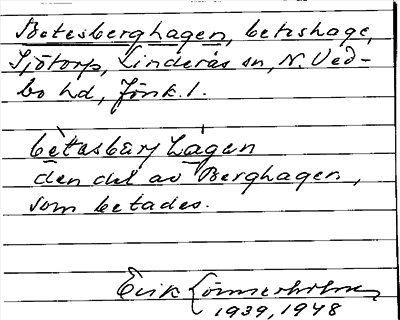 Betesberghagen, beteshage,
Sjötorp, Linderås sn, N. Ved-
bo hd, Jönk. l.
bètasbærj Lágen
den del av Berghagen,
som betades.
Erik Lönnerholm
1939, 1948